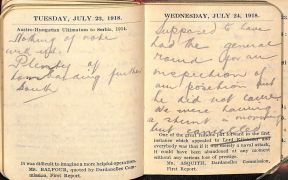 TUESDAY, JULY 23, 1918.
Austro-Hungarian Ultimatum to Serbia, 1914.
Nothing of note
Plenty of
bombarding further
south
It was difficult to imagine a more helpful operation.
Mr. BALFOUR, quoted by Dardanelles Com-
mission, First Report.
WEDNESDAY, JULY 24, 1918.
Supposed to have
had the general
round for an
inspection of
our position but
he did not come
We were having
a shoot
One of the great
instance which appealed to Lord Kitchener
everybody was that if it was merely a naval attack,
it could have been abandoned at any moment
without any serious loss of prestige.
Mr. ASQUITH, Dardanelles Commission,
First Report.